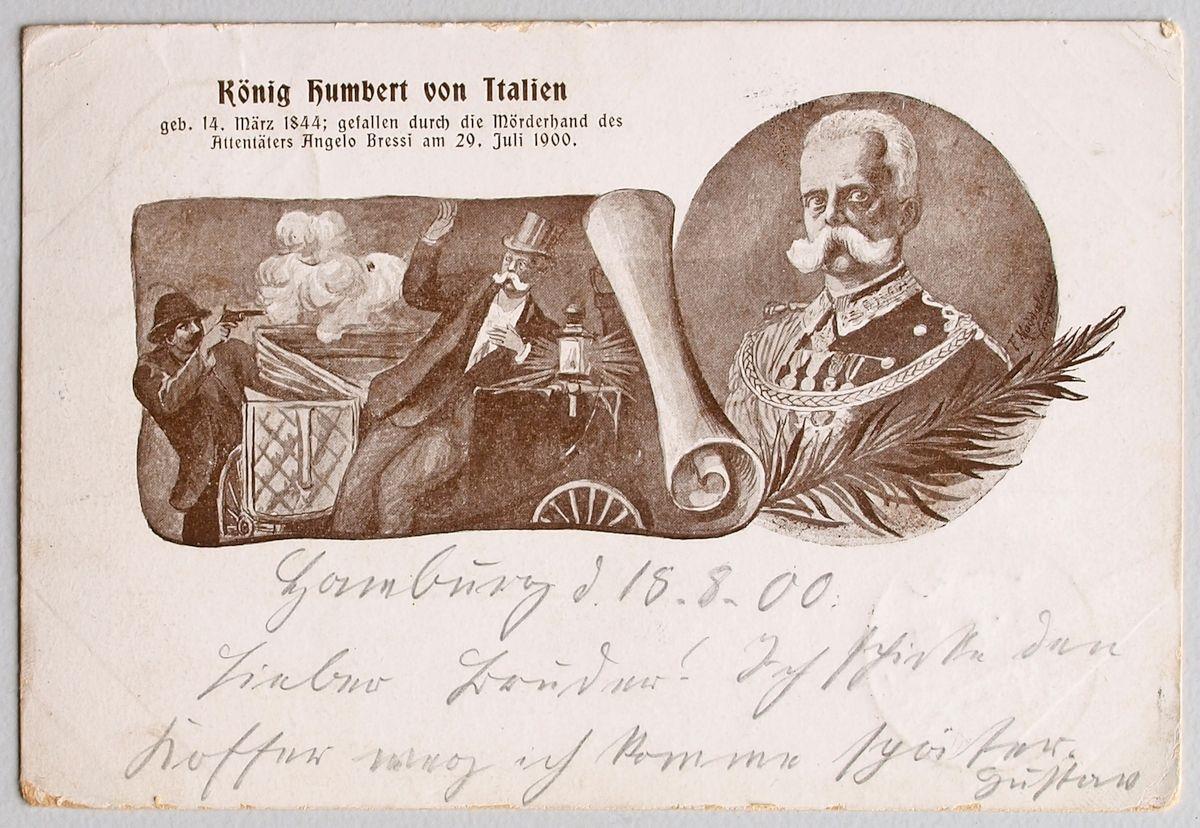 König Humbert von Italien
geb. 14. März 1844; gefallen durch die Mörderhand des
Attentäters Angelo Bressi am 29. Juli 1900.
Hamburg d. 18.-8.-00.
Lieber Bruder! Ich schicke den
Koffer weg ich komme später.
Gustav